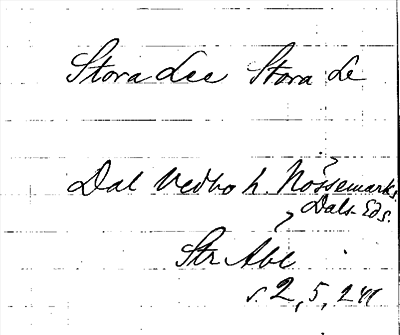 Stora Lee Stora Le
Dal Vedbo h. Nössemarks,
Dals-Eds.
Str Abl
s. 2, 5, 241